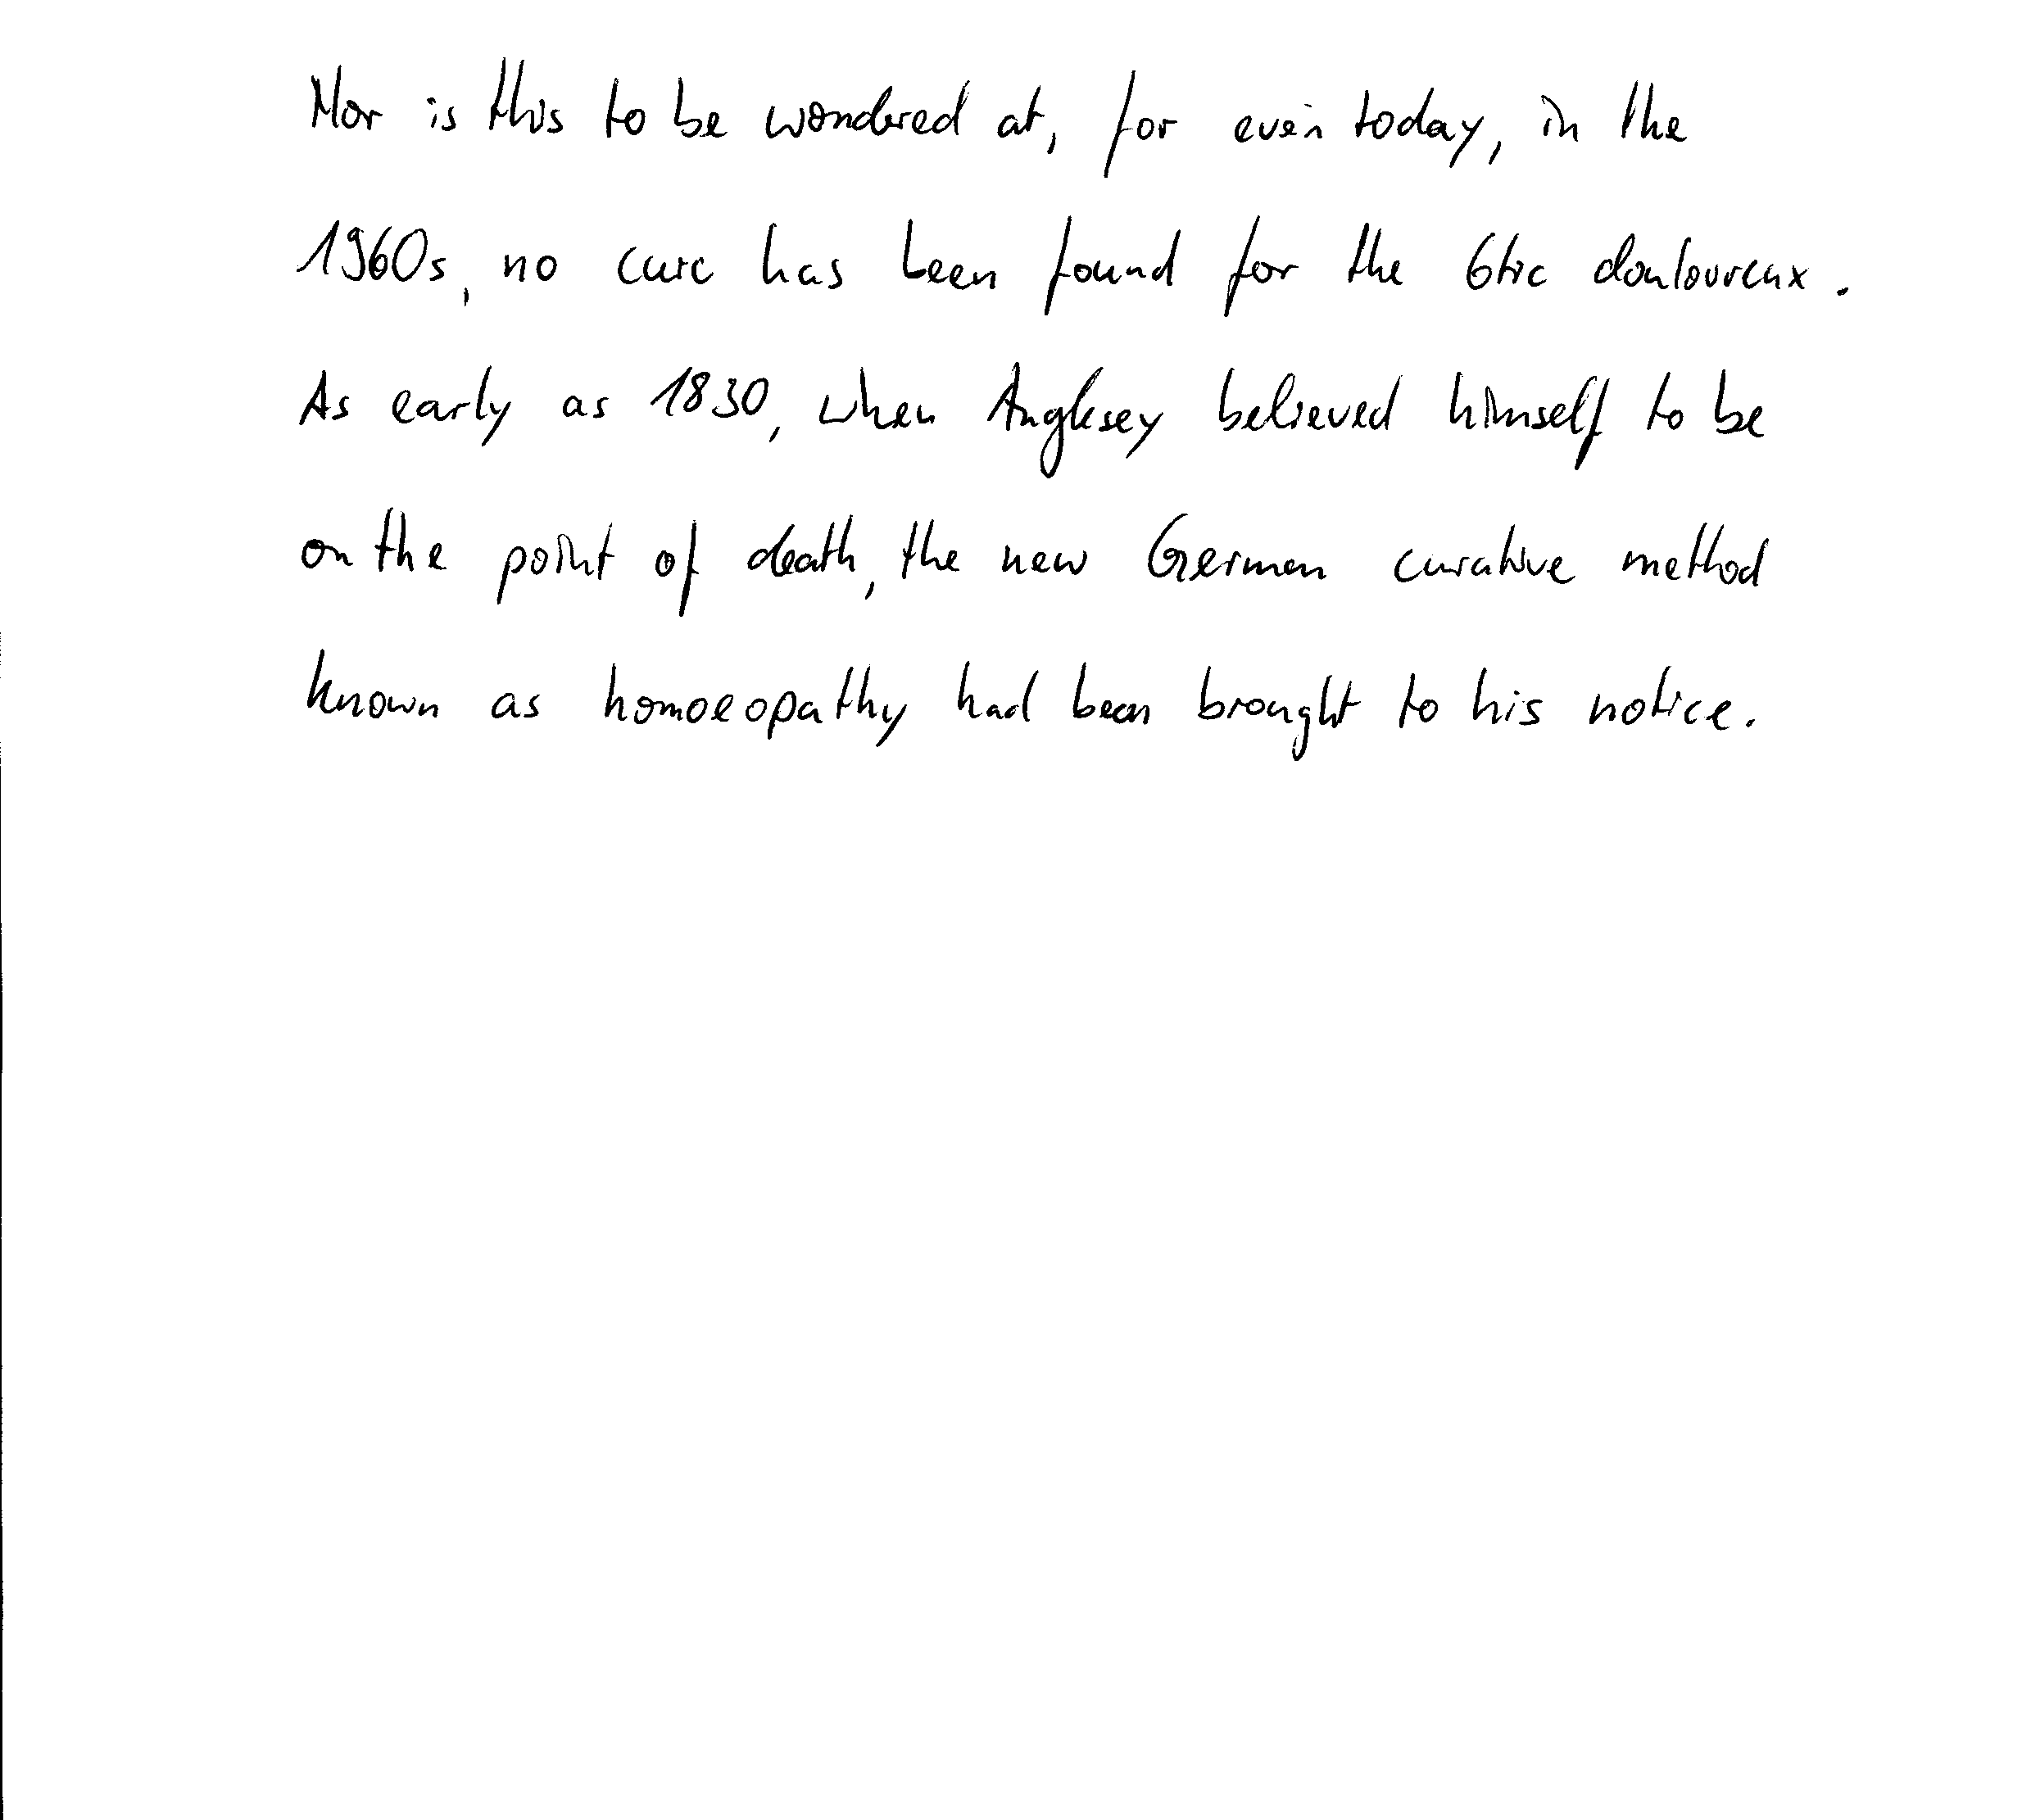 Nor is this to be wondered at, for even today, in the
1960s, no cure has been found for the 6tic douloureux.
As early as 1830, when Anglesey believed himself to be
on the point of death, the new German curative method
known as homoeopathy had been brought to his notice.